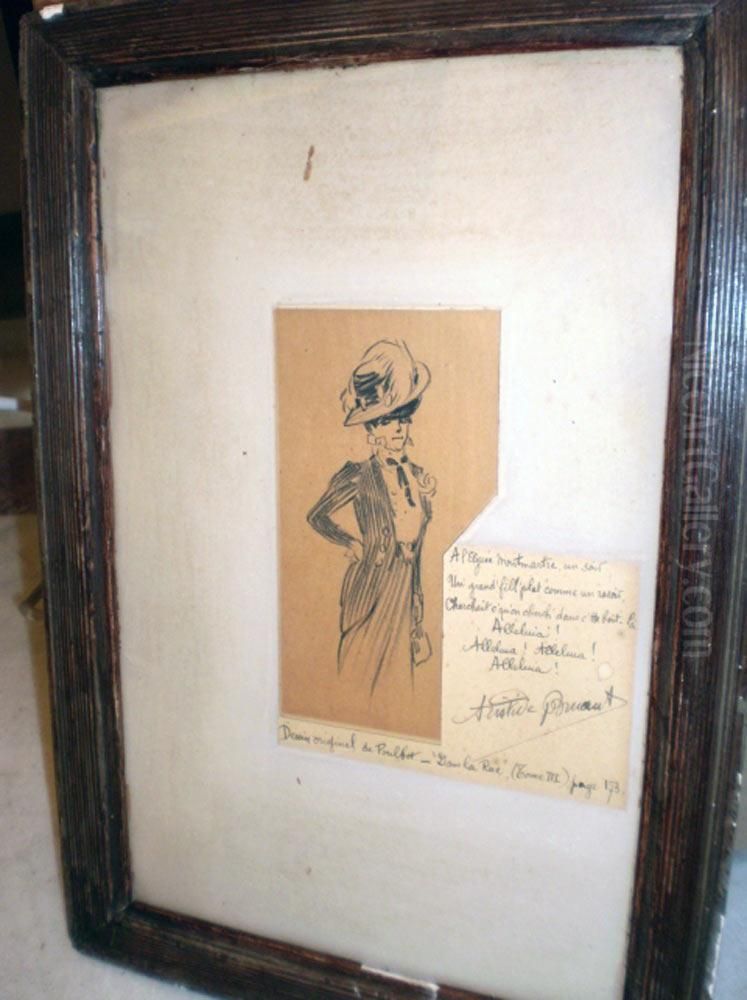 A l'Elysée Montmartre, un soir
Un grand' fill' plat' comme un rasoir,
Cherchait c'qu'on cherch' dans c'tte boit'-là
Alleluia !
Alleluia ! Alleluia !
Alleluia !
Aristide Bruant
Dessin original de Poulbot — "Dans la Rue", (Tome III) page 173.
NiceArtGallery.com